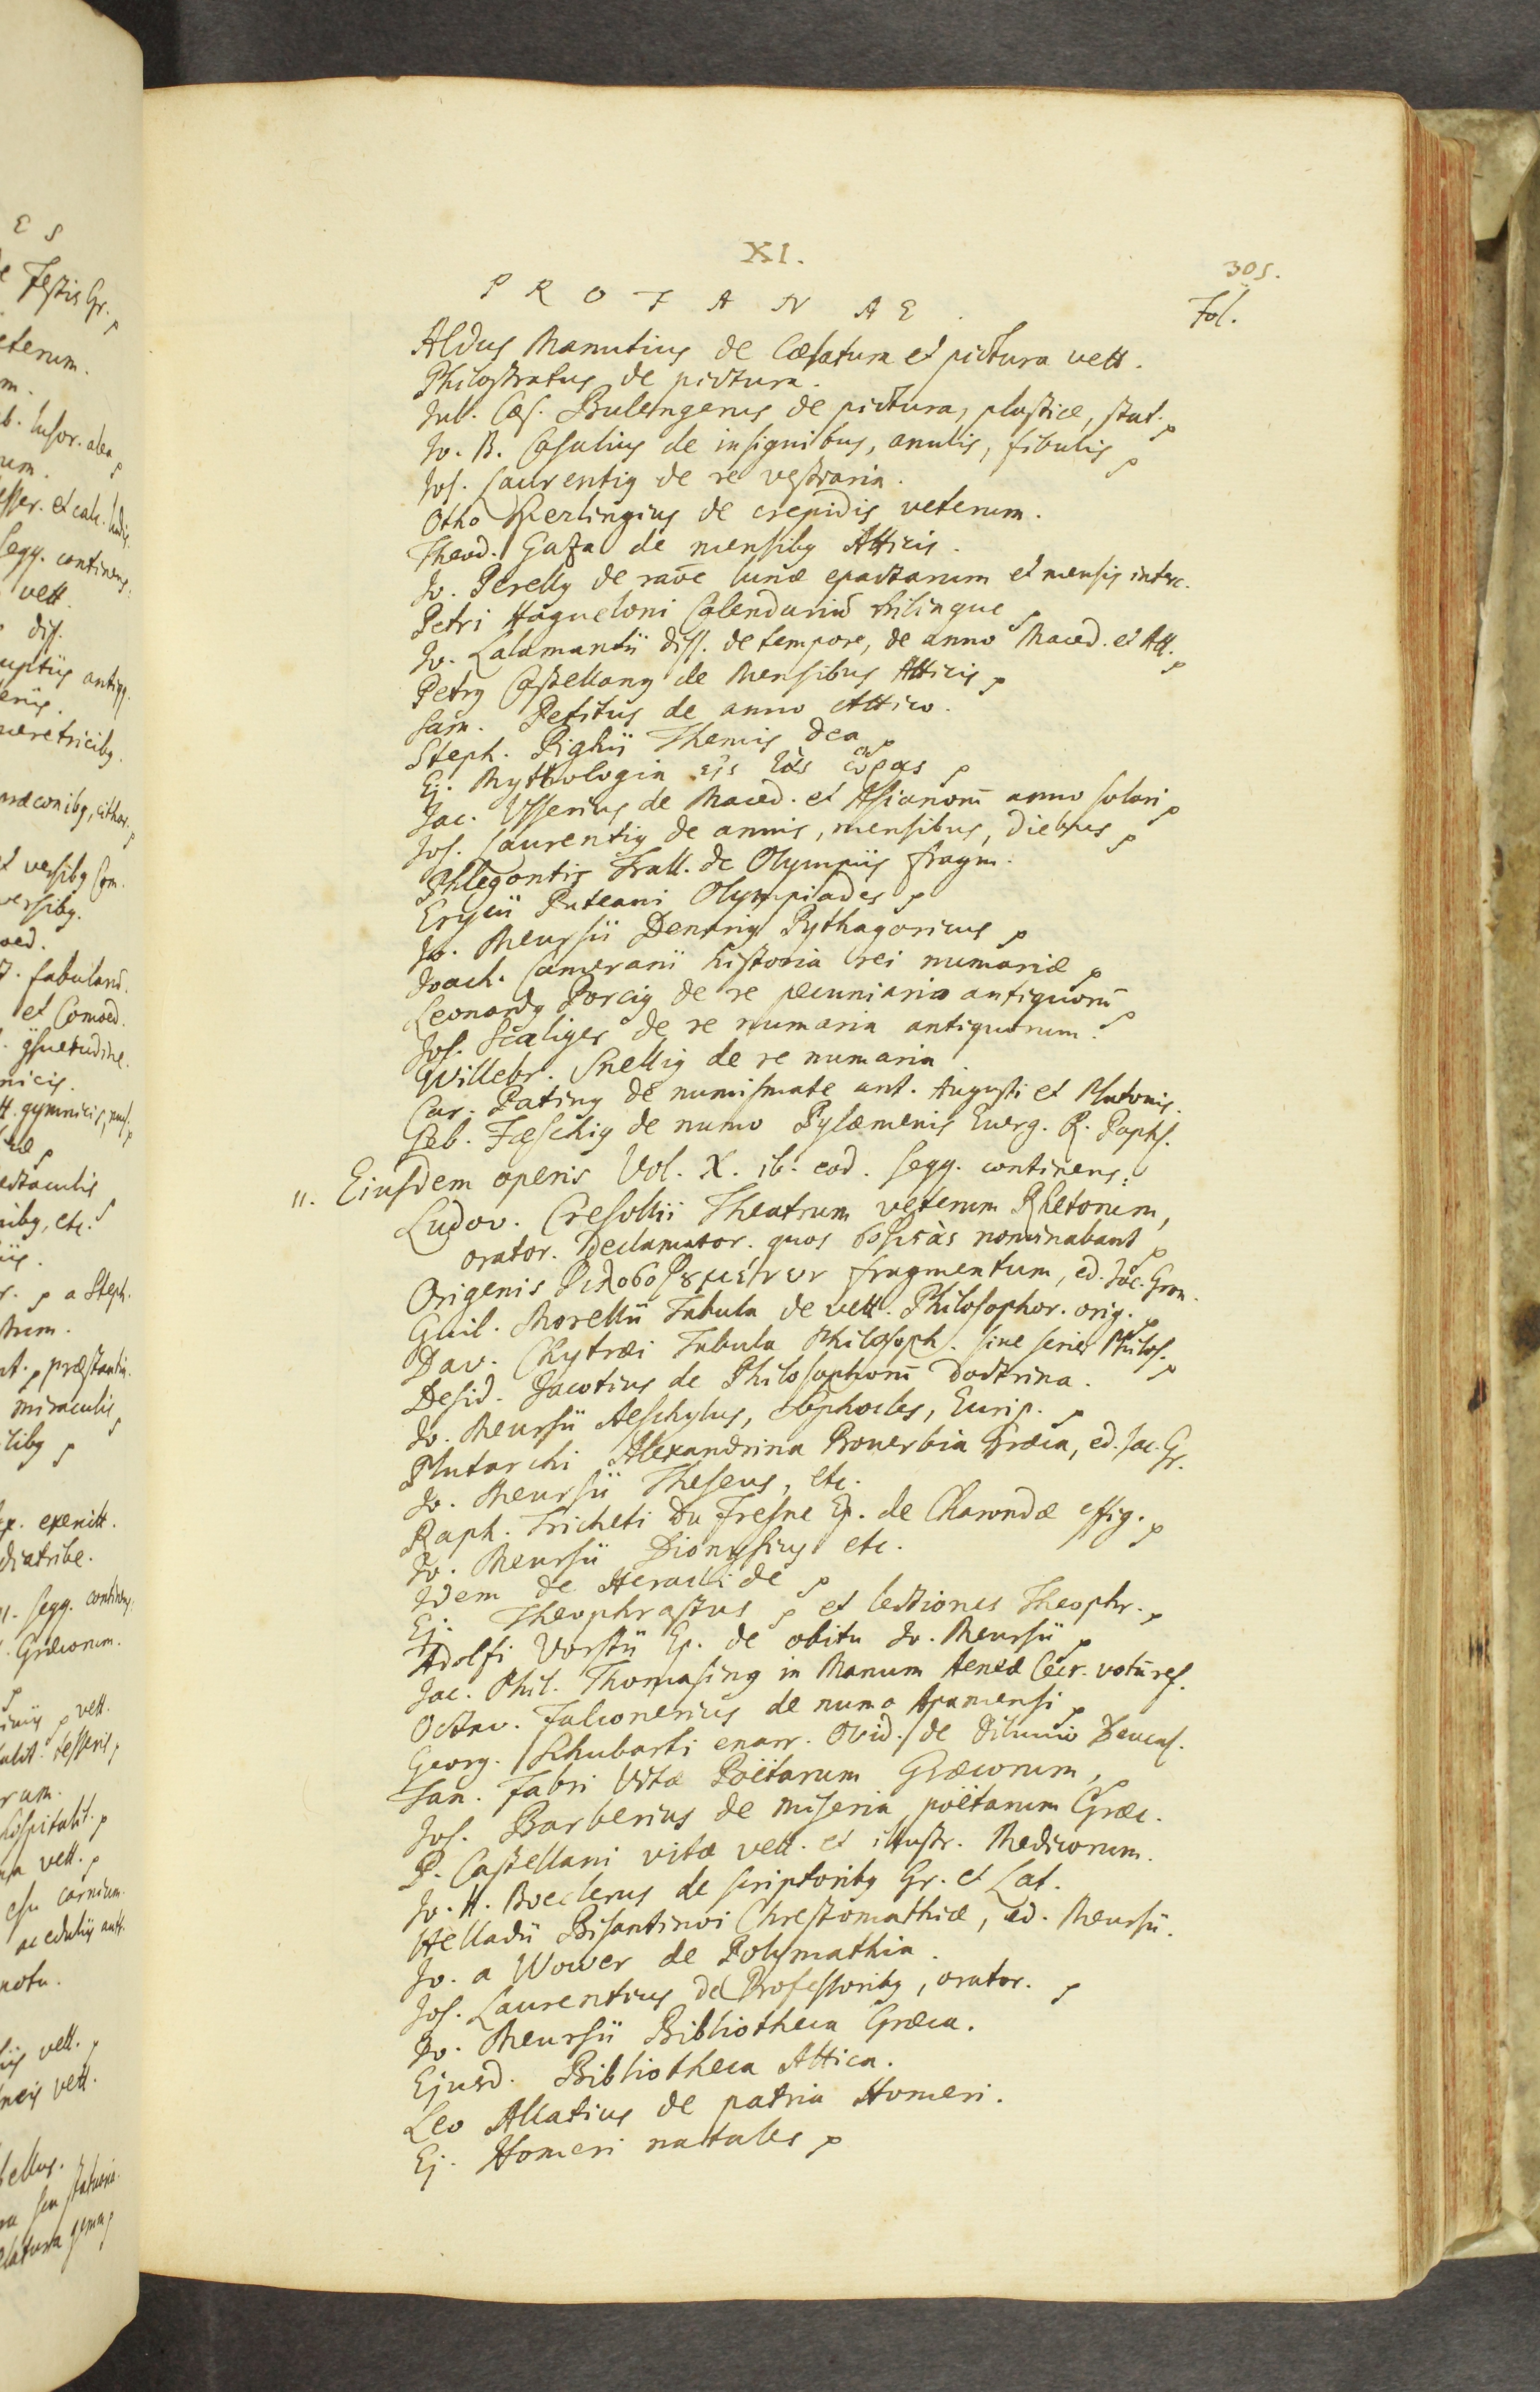 XI.
305.
P R O F A N AE.
Fol.
Aldus Manutius de Cælatura et pictura vett.
Philostratus de pictura.
Jul. Cæs. Bulengerus de pictura, plastice, stat.
Jo. B. Casalius de insignibus, anulis, fibulis
Jos. Laurentiꝰ de re vestiaria.
Otho Sperlingius de crepidis veterum.
Theod. Gaza de mensibꝰ Atticis.
Jo. Perellꝰ de raōe lunæ epactarum et mensis interc.
Petri Hagueloni Calendariū trilingue
Jo. Lalamantii diss. de tempore, de anno Maced. et Att.
Petrꝰ Castellanꝰ de Mensibus Atticis
Sam. Petitus de anno Attico.
Steph. Pighii Themis dea
Ej. Mythologia εἰς τὰς ὥρας
Jac. Usserius de Maced. et Asianorū anno solari
Jos. Laurentiꝰ de annis, mensibus, diebus
Phlegontis Trall. de Olympiis fragm.
Erycii Puteani Olympiades
Jo. Meursii Denariꝰ Pythagoricus
Joach. Camerarii historia rei numariæ
Leonardꝰ Porciꝰ de re pecuniaria antiquorū
Jos. Scaliger de re numaria antiquorum.
Willebr. Snelliꝰ de re numaria
Car. Patinꝰ de numismate ant. Augusti et Platonis.
Seb. Fæschiꝰ de numo Pylæmenis Everg. R. Paphl.
11. Ejusdem operis Vol. X. ib. eod. seqq. continens:
Ludov. Cresollii Theatrum veterum Rhetorum,
orator. Declamator. quos σοφιστὰς nominabant
Origenis Φιλοσοφουμένων fragmentum, ed. Jac. Gron.
Guil. Morellii Tabula de vett. Philosophor. orig.
Dav. Chytræi Tabula Philosoph. sive series Philos.
Desid. Jacotius de Philosophorū doctrina.
Jo. Meursii Aeschylus, Sophocles, Eurip.
Plutarchi Alexandrina Proverbia Græca, ed. Jac. Gr.
Jo. Meursii Theseus, etc.
Raph. Tricheti Du Fresne Ep. de Charondæ effig.
Jo. Meursii Dionysius etc.
Idem de Heraclide
Ej. Theophrastus et lectiones Theophr.
Adolfi Vorstii Ep. de obitu Jo. Meursii
Jac. Phil. Thomasinꝰ in Manum Aeneæ Cecr. votū ref.
Octav. Falconerius de numo Apamensi
Georg. Schubarti enarr. Ovid. de Diluvio Deucal.
Tan. Fabri Vitæ Poëtarum Græcorum
Jos. Barberius de miseria poëtarum Græc.
P. Castellani vitæ vett. et illustr. Medicorum.
Jo. H. Boeclerus de scriptoribꝰ Gr. et Lat.
Helladii Bisantinoi Chrestomathiæ, ed. Meursii.
Jo. a Wower de Polymathia.
Jos. Laurentius de Professoribꝰ, orator.
Jo. Meursii Bibliotheca Græca.
Ejusd. Bibliotheca Attica.
Leo Allatius de patria Homeri.
Ej. Homeri natales